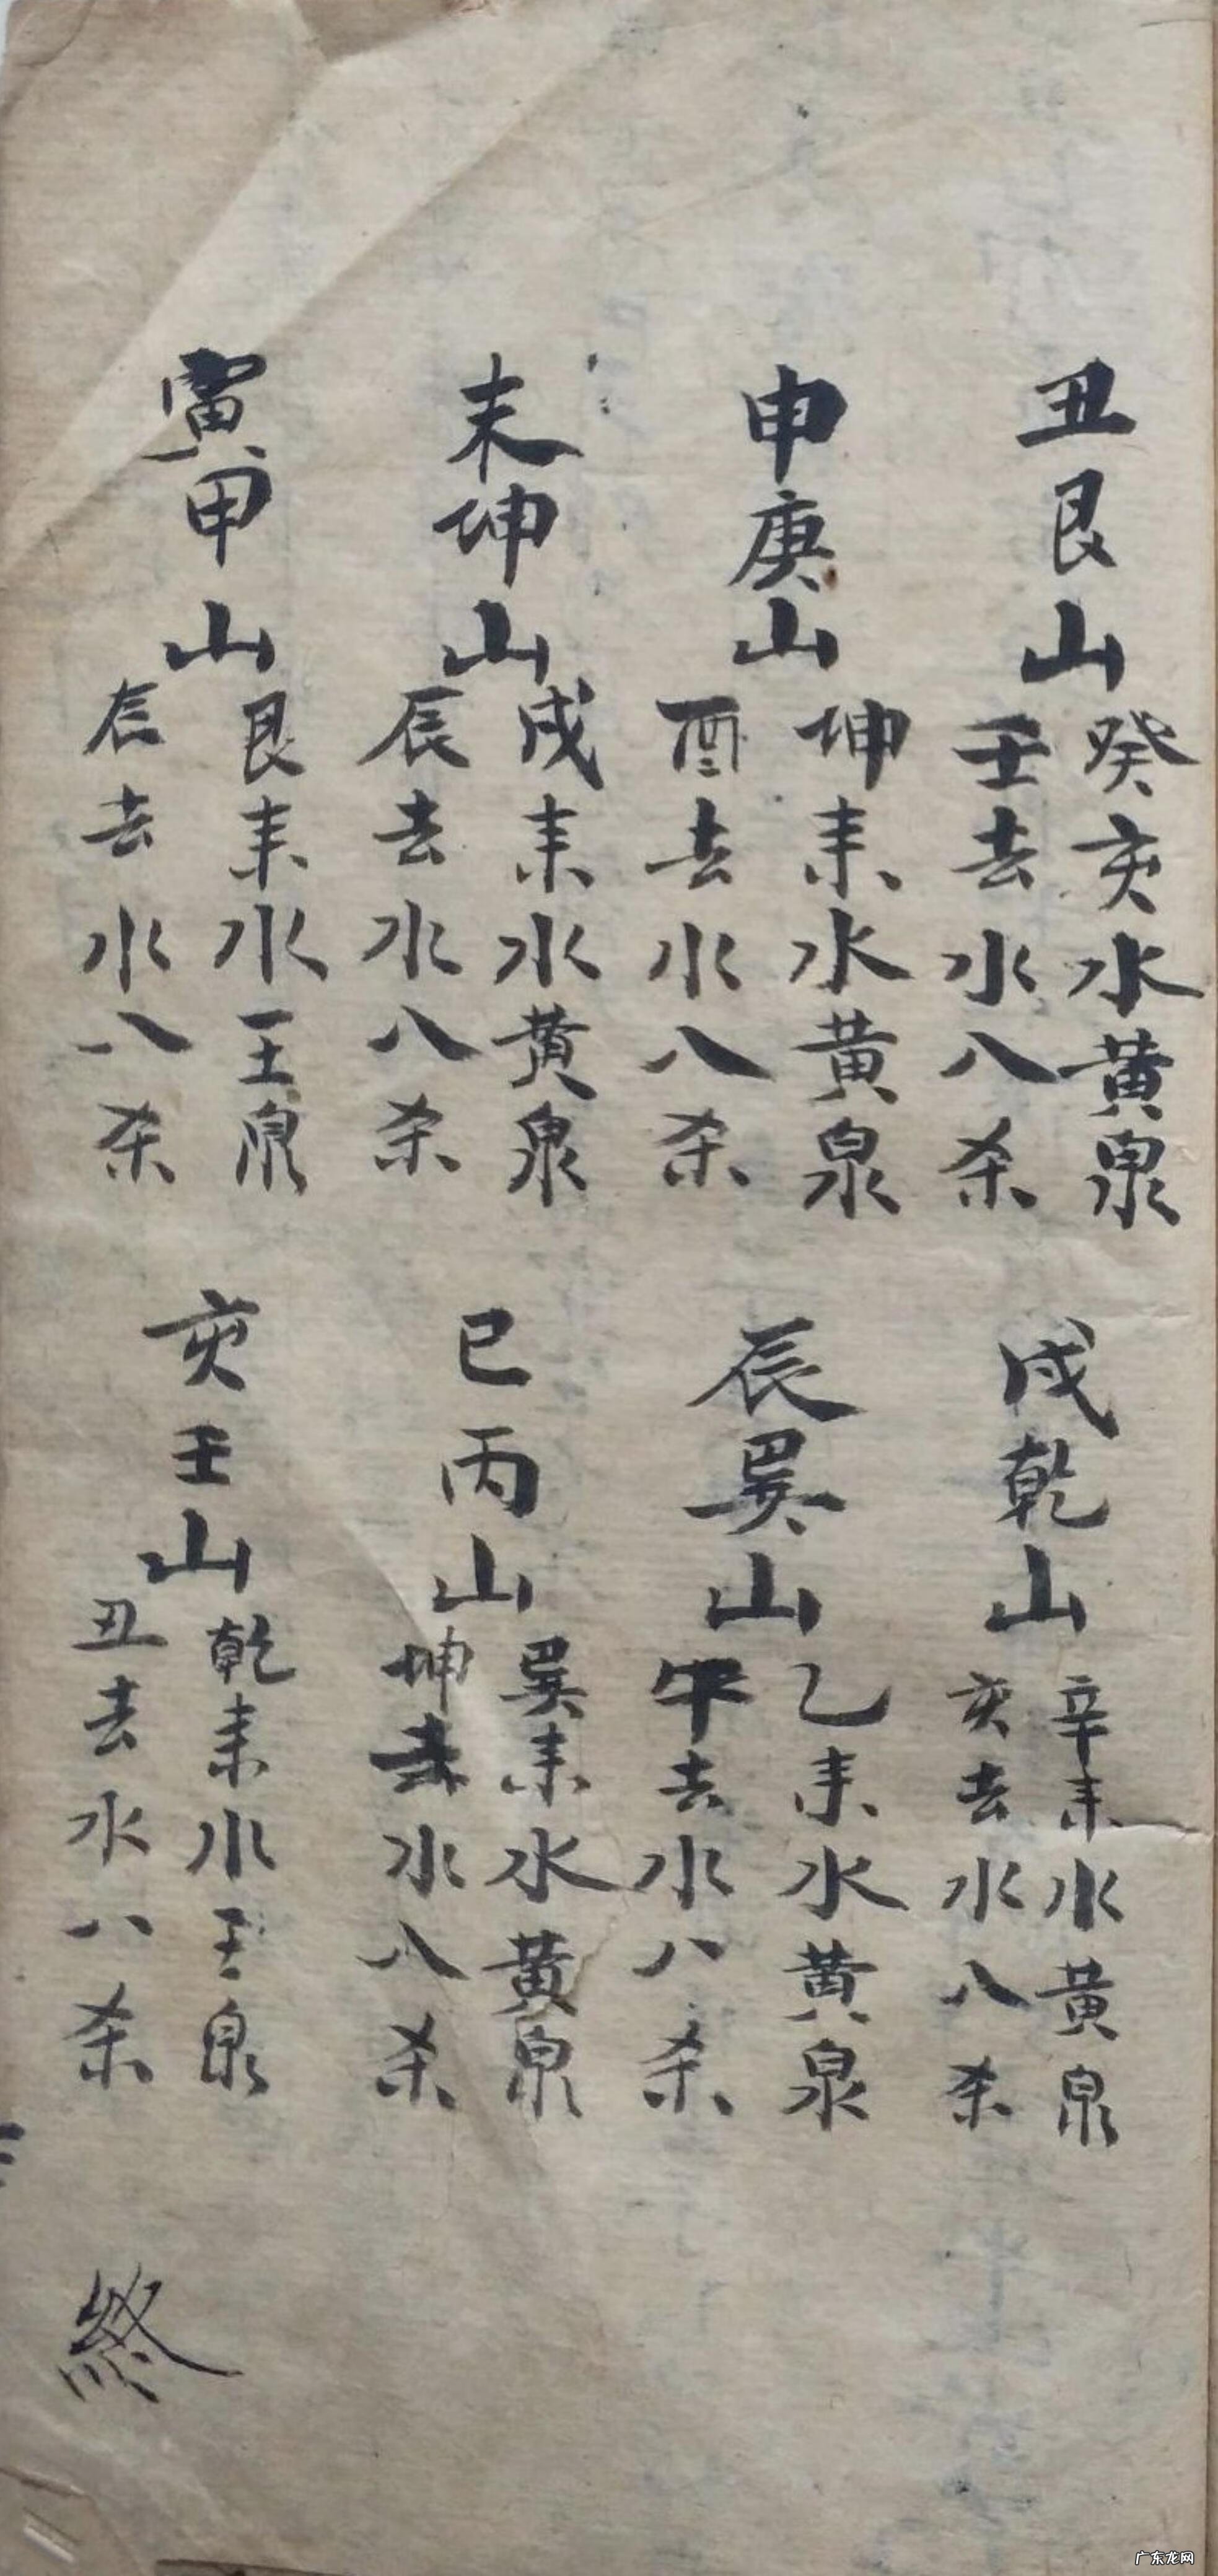 丑艮山
癸亥水黄泉
壬去水八杀
戌乾山
辛耒水黄泉
亥去水八杀
申庚山
坤耒水黄泉
酉去水八杀
辰巽山
乙耒水黄泉
午去水八杀
未坤山
戌耒水黄泉
辰去水八杀
巳丙山
巽耒水黄泉
坤去水八杀
寅甲山
艮耒水王泉
辰去水八杀
亥壬山
乾耒水王泉
丑去水八杀
終
广东龙网